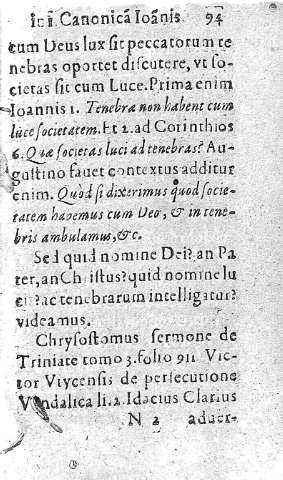 In i Canonicā Ioānis. 94
cum Deus lux sit peccatorum te
nebras oportet discutere, vt so-
cietas sit cum Luce. Prima enim
Ioannis 1. Tenebræ non habent cum
luce societatem. Et 2. ad Corinthios
6. Quæ societas luci ad tenebras? Au-
gustino fauet contextus additur
enim. Quòd si dixerimus quod socie-
tatem habemus cum Deo, & in tene-
bris ambulamus, &c.
Sed quid nomine Dei? an Pa
ter, an Christus? quid nomine lu
ci? ac tenebrarum intelligatur?
videamus.
Chrysostomus sermone de
Triniate tomo 3. folio 911 Vic-
tor Vtycensis de persecutione
Vandalica li. 2. Idacius Clarius
N 2 aduer-